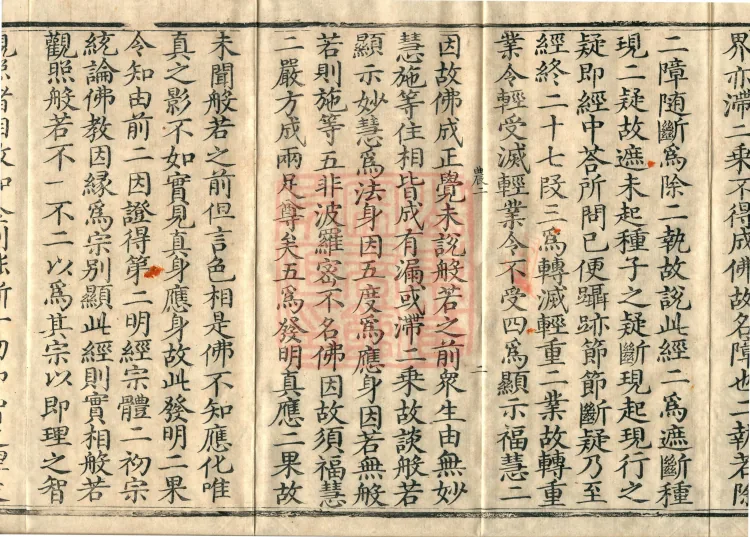 界亦滯二乘不得成佛故名障也二執若除
二障随斷爲除二執故說此經二爲遮斷種
現二疑故遮未起種子之疑斷現起現行之
疑即經中荅所問已便躡跡節節斷疑乃至
經終二十七段三爲轉滅輕重二業故轉重
業令輕受滅輕業令不受四爲顯示福慧二
農二
二
因故佛成正覺未說般若之前衆生由無妙
慧施等住相皆成有漏或滯二乘故談般若
顯示妙慧爲法身因五度爲應身因若無般
若則施等五非波羅密不名佛因故須福慧
二嚴方成兩足尊矣五爲發明真應二果故
未聞般若之前但言色相是佛不知應化唯
真之影不如實見真身應身故此發明二果
令知由前二因證得第二明經宗體二初宗
統論佛教因緣爲宗別顯此經則實相般若
觀照般若不一不二以爲其宗以即理之智
觀照諸相故如金剛能斷一切即智之理